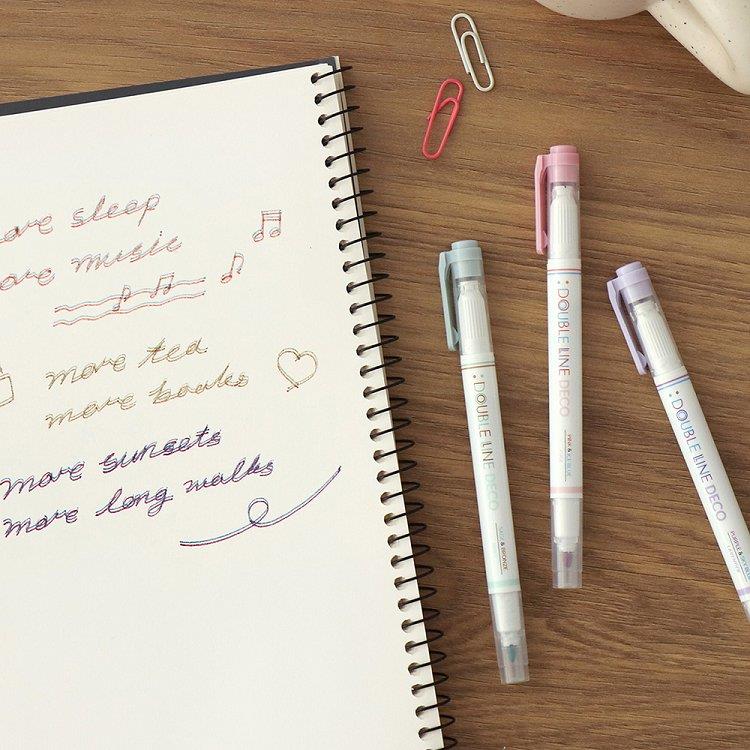 more sleep
more music
more tea
more books
more sunsets
more long walks
DOUBLE LINE DECO
DOUBLE LINE DECO
PINK & ICE BLUE
DOUBLE LINE DECO